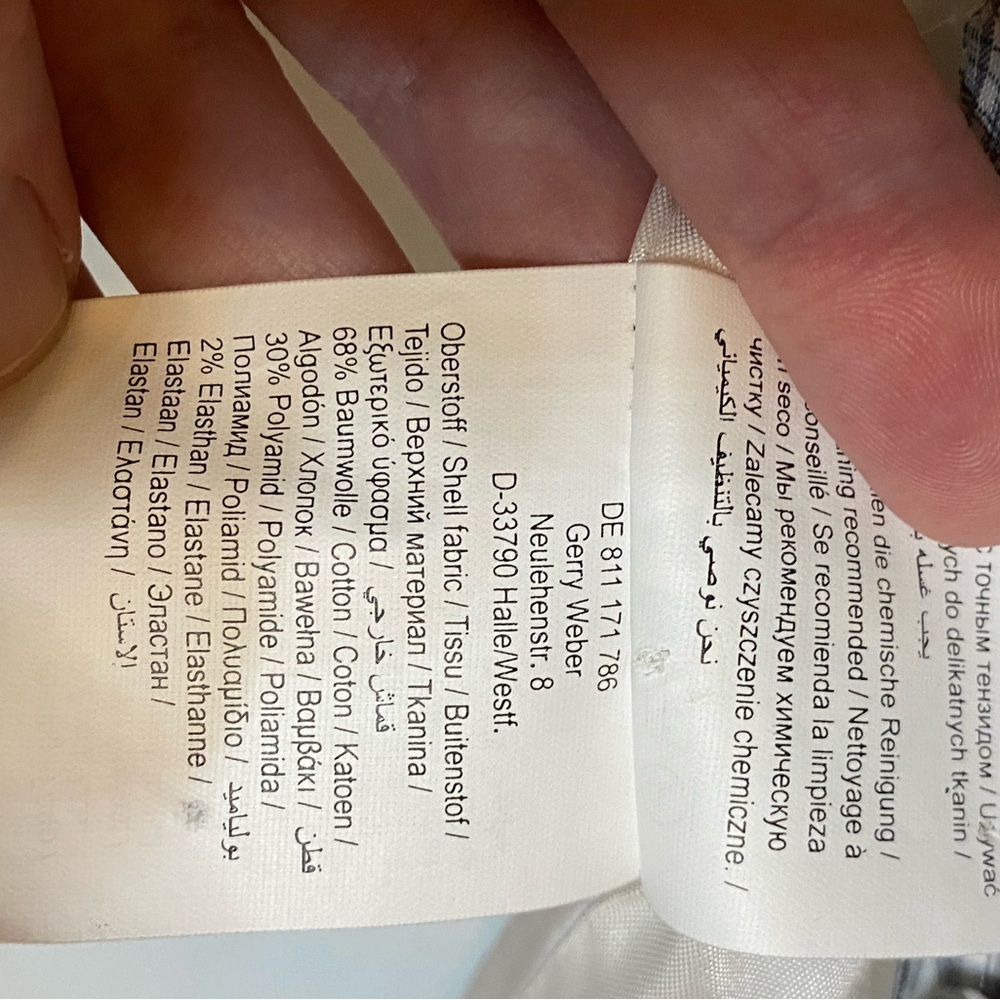 с точным тензидом / Używać
ych do delikatnych tkanin /
يجب غسله
die chemische Reinigung /
recommended / Nettoyage à
conseillé / Se recomienda la limpieza
seco / Мы рекомендуем химическую
чистку / Zalecamy czyszczenie chemiczne. /
نحن نوصي بالتنظيف الكيميائي
DE 811 171 786
Gerry Weber
Neulehenstr. 8
D-33790 Halle/Westf.
Oberstoff / Shell fabric / Tissu / Buitenstof /
Tejido / Верхний материал / Tkanina /
Εξωτερικό ύφασμα / قماش خارجي
68% Baumwolle / Cotton / Coton / Katoen /
Algodón / Хлопок / Bawełna / Βαμβάκι / قطن
30% Polyamid / Polyamide / Poliamida /
Полиамид / Poliamid / Πολυαμίδιο / بولياميد
2% Elasthan / Elastane / Elasthanne /
Elastaan / Elastano / Эластан /
Elastan / Ελαστάνη / الاستان